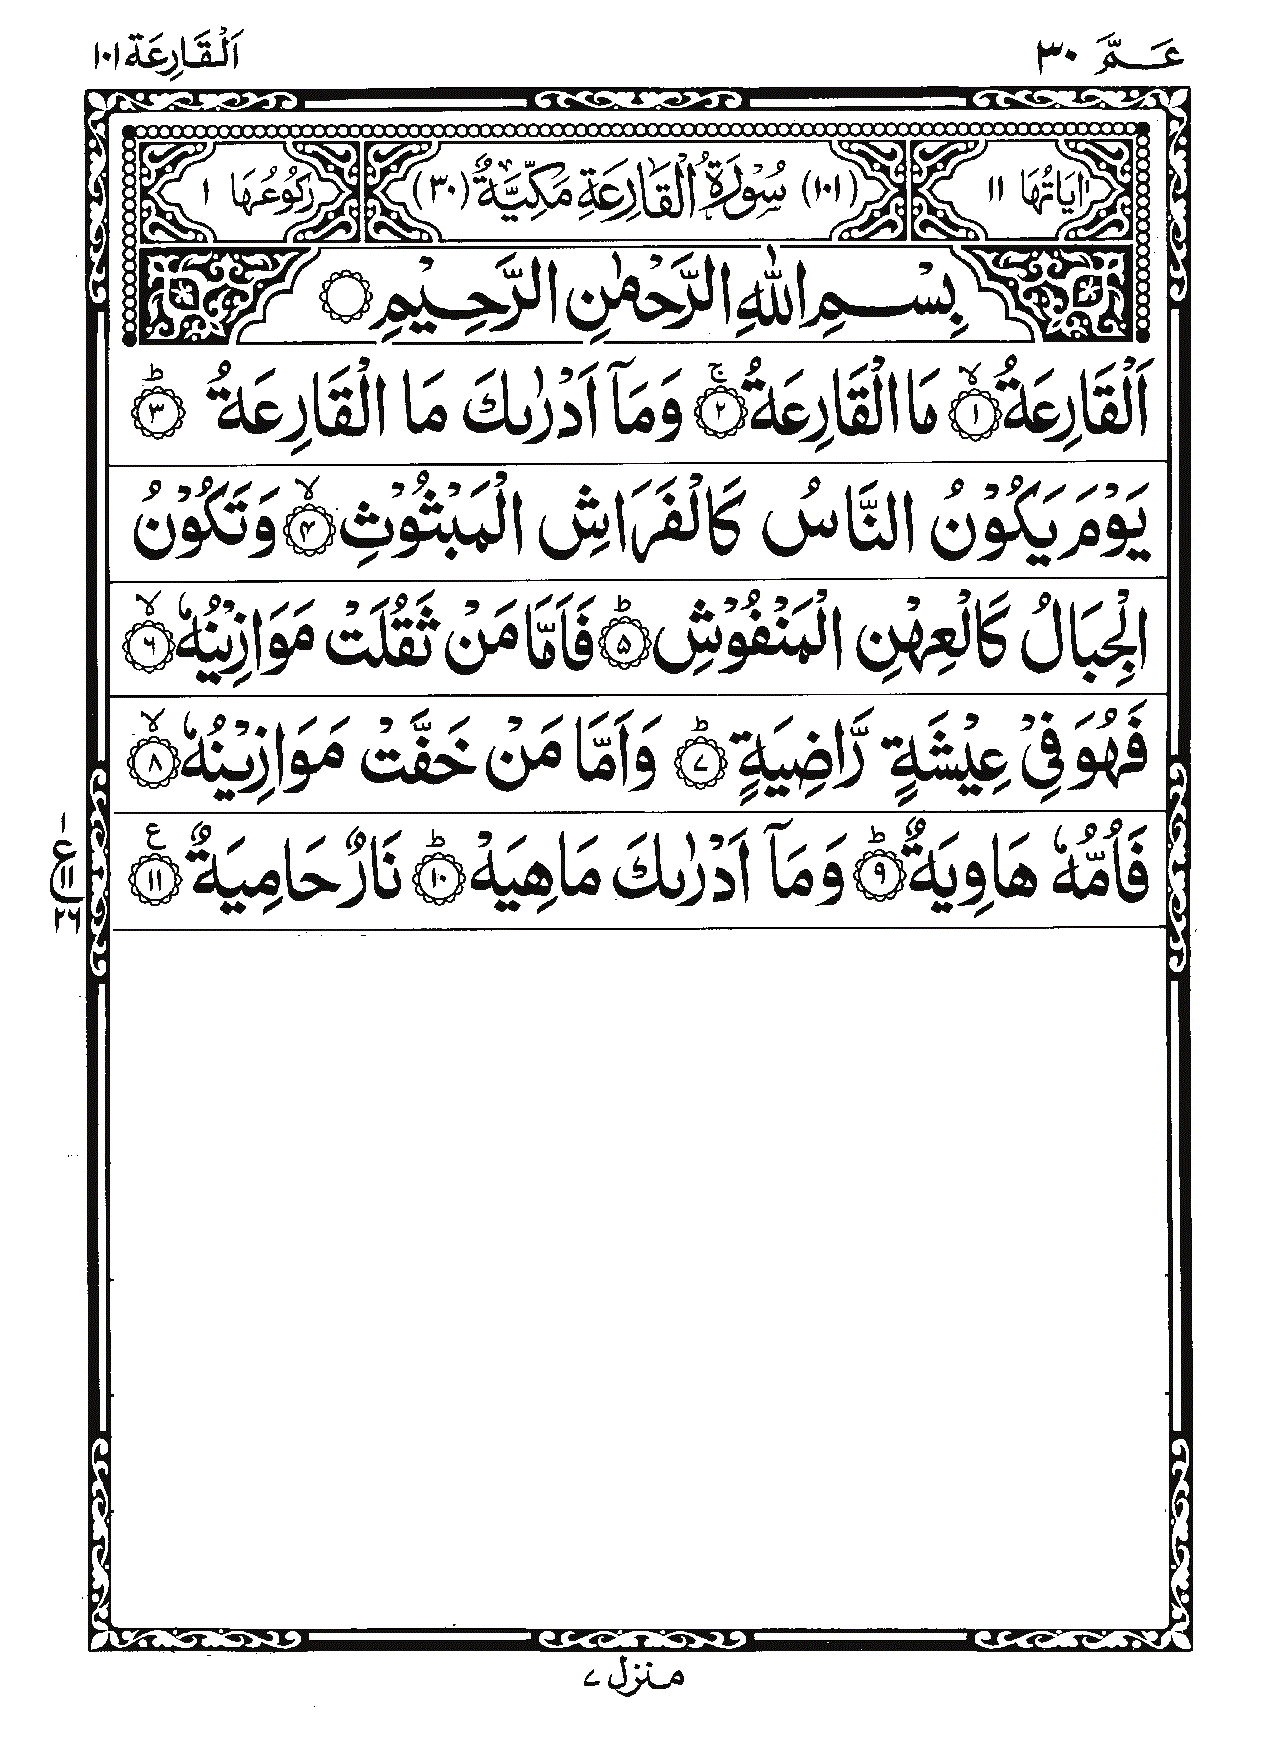 عَـمَّ ٣٠
اَلْقَارِعَة ١٠١
اٰيَاتُهَا ١١
(١٠١) سُوْرَةُ الْقَارِعَةِ مَكِّيَّةٌ (٣٠)
رُكُوْعُهَا ١
بِسْمِ اللّٰهِ الرَّحْمٰنِ الرَّحِيْمِ
اَلْقَارِعَةُ ۙ﴿١﴾ مَا الْقَارِعَةُ ۚ﴿٢﴾ وَمَاۤ اَدْرٰىكَ مَا الْقَارِعَةُ ؕ﴿٣﴾
يَوْمَ يَكُوْنُ النَّاسُ كَالْفَرَاشِ الْمَبْثُوْثِ ۙ﴿۴﴾ وَتَكُوْنُ
الْجِبَالُ كَالْعِهْنِ الْمَنْفُوْشِ ؕ﴿۵﴾ فَاَمَّا مَنْ ثَقُلَتْ مَوَازِيْنُهٗ ۙ﴿۶﴾
فَهُوَ فِيْ عِيْشَةٍ رَّاضِيَةٍ ؕ﴿۷﴾ وَاَمَّا مَنْ خَفَّتْ مَوَازِيْنُهٗ ۙ﴿٨﴾
فَاُمُّهٗ هَاوِيَةٌ ؕ﴿٩﴾ وَمَاۤ اَدْرٰىكَ مَاهِيَهْ ؕ﴿١٠﴾ نَارٌ حَامِيَةٌ ﴿١١﴾ ع
١
ع
١١
٢٦
منزل ۷